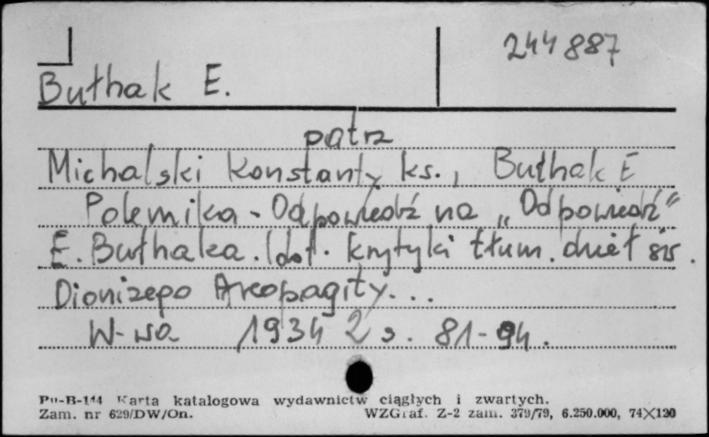 244887
Bułhak E.
patrz
Michalski Konstanty ks., Bułhak E
Polemika - Odpowiedź na „Odpowiedź"
E. Bułhaka. (dot. krytyki tłum. dzieł św.
Dionizego Areopagity...
W-wa 1934 2 s. 81-94.
Pu-B-144 Karta katalogowa wydawnictw ciągłych i zwartych.
Zam. nr 629/DW/On. WZGraf. Z-2 zam. 379/79, 6.250.000, 74X120